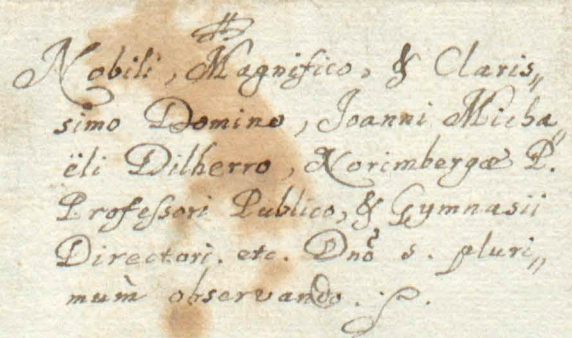 Nobili, Magnifico, & Claris„
simo Domino, Joanni Micha„
ëli Dilherro, Norimbergæ P.
Professori Publico, & Gymnasii
Directori. etc. Dnõ s. pluri„
mum̀ observando.